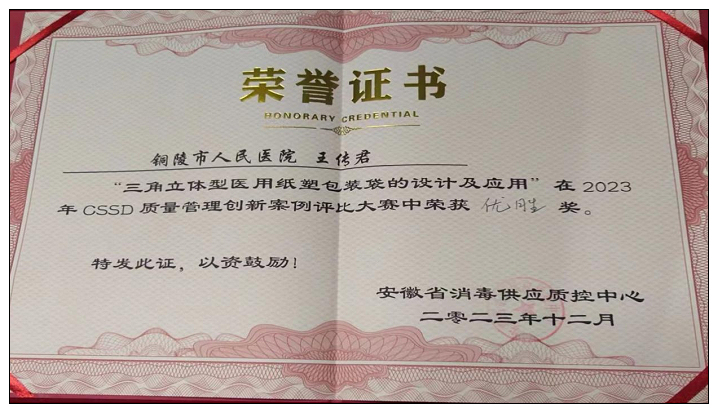 荣誉证书
HONORARY CREDENTIAL
铜陵市人民医院 王传君
“三角立体型医用纸塑包装袋的设计及应用”在2023
年CSSD质量管理创新案例评比大赛中荣获 优胜 奖。
特发此证，以资鼓励！
安徽省消毒供应质控中心
二零二三年十二月